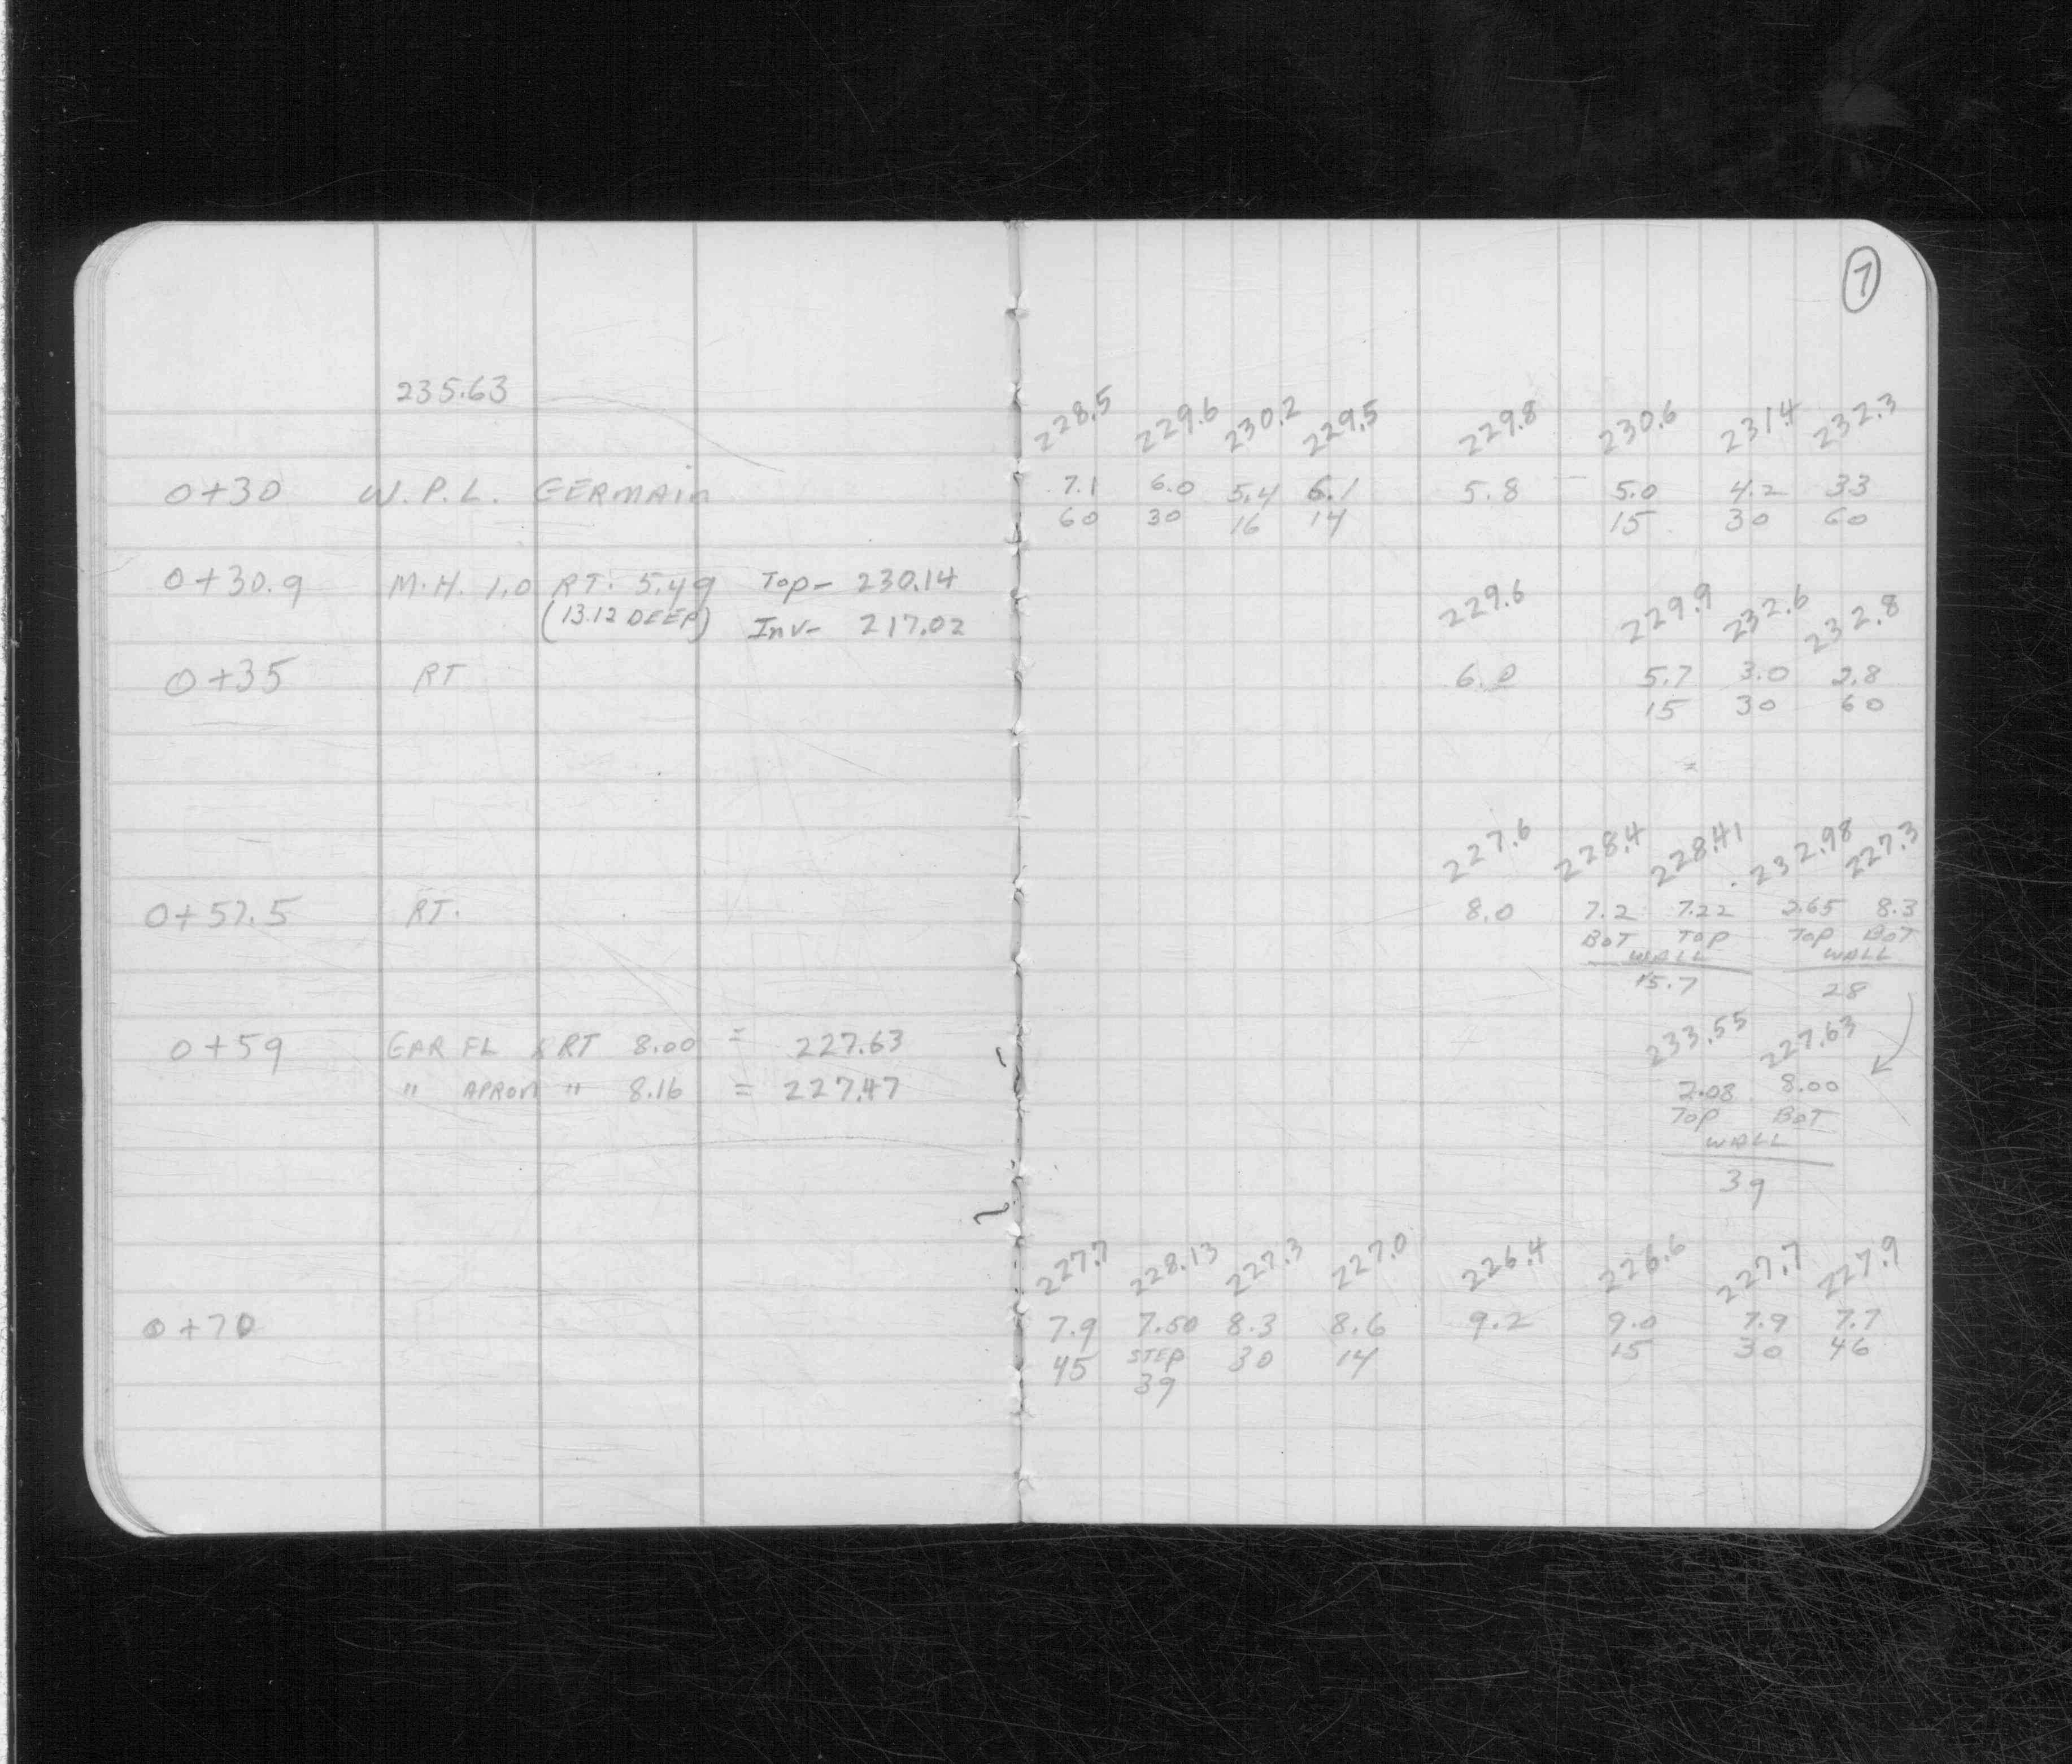 7
235.63
228.5 229.6 230.2 229.5 229.8 230.6 231.4 232.3
0+30 W.P.L. GERMAIN 7.1 6.0 5.4 6.1 5.8 5.0 4.2 33
60 30 16 14 15 30 60
0+30.9 M.H. 1.0 RT. 5.49 Top- 230.14
(13.12 DEEP) Inv- 217.02
229.6 229.9 232.6 232.8
0+35 RT 6.0 5.7 3.0 2.8
15 30 60
227.6 228.4 228.41 232.98 227.3
0+57.5 RT. 8.0 7.2 7.22 2.65 8.3
BOT TOP TOP BOT
WALL WALL
15.7 28
233.55 227.63
0+59 GAR FL RT 8.00 = 227.63
" APRON " 8.16 = 227.47 2.08 8.00
TOP BOT
WALL
39
227.7 228.13 227.3 227.0 226.4 226.6 227.7 227.9
0+70 7.9 7.50 8.3 8.6 9.2 9.0 7.9 7.7
45 STEP 30 14 15 30 46
39